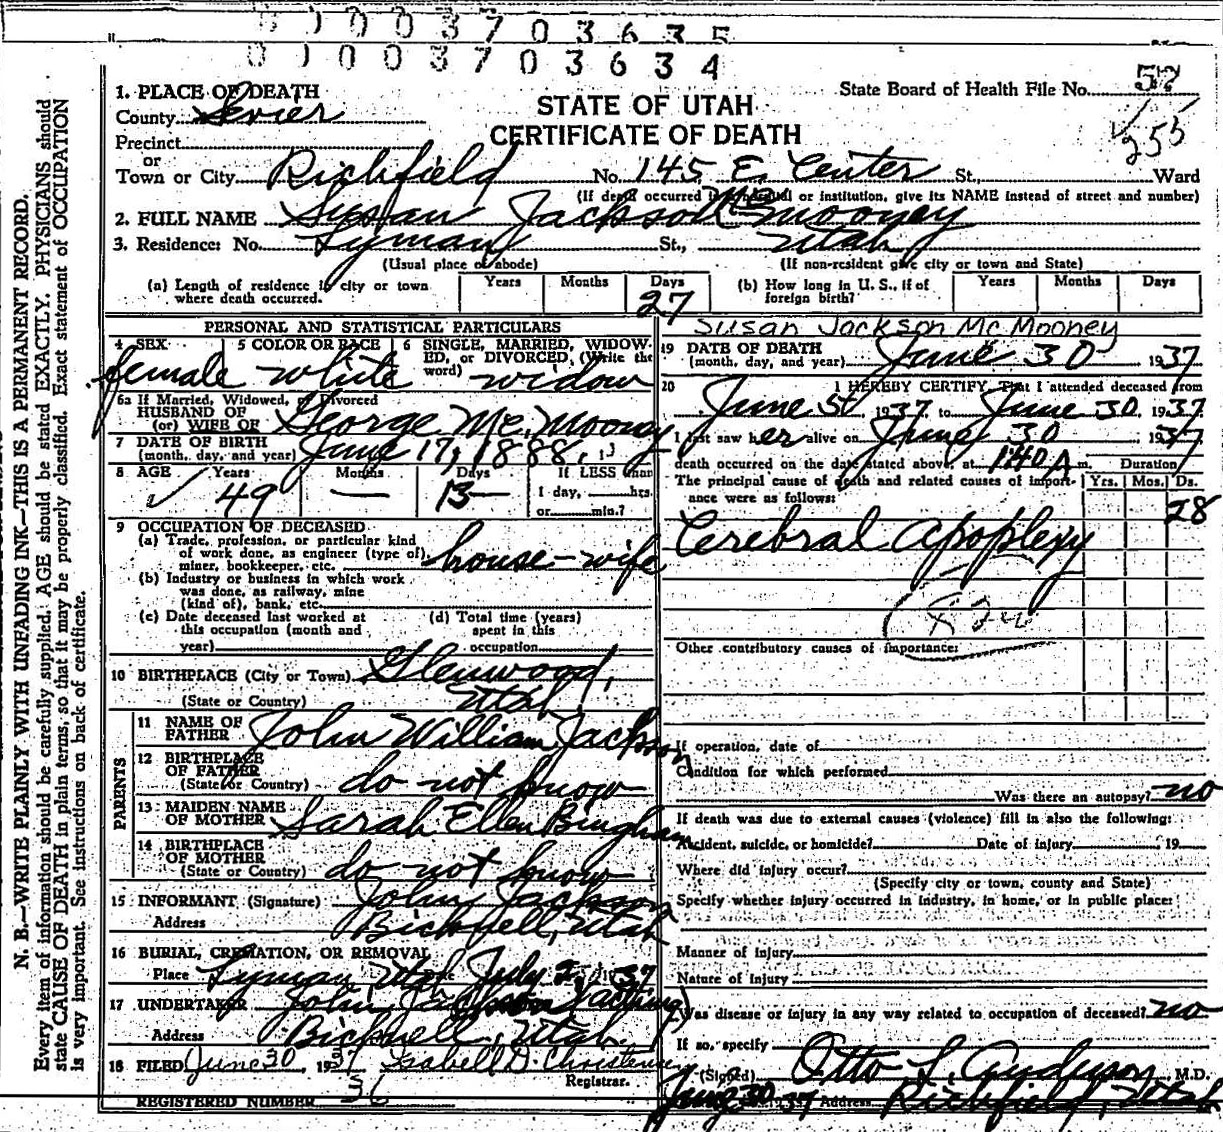 0 1 0 0 3 7 0 3 6 3 5
0 1 0 0 3 7 0 3 6 3 4
1. PLACE OF DEATH
County Sevier
STATE OF UTAH
CERTIFICATE OF DEATH
State Board of Health File No. 52
255
Precinct
or
Town or City Richfield No. 145 E. Center St., Ward
(If death occurred in hospital or institution, give its NAME instead of street and number)
2. FULL NAME Susan Jackson McMooney
3. Residence: No. Lyman St., Utah
(Usual place of abode) (If non-resident give city or town and State)
(a) Length of residence in city or town where death occurred. Years Months Days 27
(b) How long in U. S., if of foreign birth? Years Months Days
PERSONAL AND STATISTICAL PARTICULARS
4 SEX female
5 COLOR OR RACE white
6 SINGLE, MARRIED, WIDOWED, or DIVORCED, (Write the word) widow
6a If Married, Widowed, or Divorced
HUSBAND OF
(or) WIFE OF George Mc. Mooney
7 DATE OF BIRTH
(month, day, and year) June 17, 1888
8 AGE Years 49 Months — Days 13 If LESS than
1 day, hrs.
or min.?
9 OCCUPATION OF DECEASED
(a) Trade, profession, or particular kind
of work done, as engineer (type of),
miner, bookkeeper, etc. house-wife
(b) Industry or business in which work
was done, as railway, mine
(kind of), bank, etc.
(c) Date deceased last worked at
this occupation (month and
year)
(d) Total time (years)
spent in this
occupation
10 BIRTHPLACE (City or Town) Glenwood,
(State or Country) Utah
PARENTS
11 NAME OF
FATHER John William Jackson
12 BIRTHPLACE
OF FATHER
(State or Country) do not know
13 MAIDEN NAME
OF MOTHER Sarah Ellen Bingham
14 BIRTHPLACE
OF MOTHER
(State or Country) do not know
15 INFORMANT (Signature) John Jackson
Address Bicknell, Utah
16 BURIAL, CREMATION, OR REMOVAL
Place Lyman, Utah Date July 2, 1937
17 UNDERTAKER John Jackson (acting)
Address Bicknell, Utah.
18 FILED June 30, 1937 Isabell D. Christensen
Registrar.
REGISTERED NUMBER 36
Susan Jackson McMooney
19 DATE OF DEATH
(month, day, and year) June 30 1937
20 I HEREBY CERTIFY, That I attended deceased from
June 5th 1937, to June 30, 1937.
I last saw her alive on June 30, 1937
death occurred on the date stated above, at 1:40 A m. Duration
The principal cause of death and related causes of importance were as follows: Yrs. Mos. Ds.
28
Cerebral apoplexy
82a
Other contributory causes of importance:
If operation, date of
Condition for which performed
Was there an autopsy? no
If death was due to external causes (violence) fill in also the following:
Accident, suicide, or homicide? Date of injury 19
Where did injury occur?
(Specify city or town, county and State)
Specify whether injury occurred in industry, in home, or in public place:
Manner of injury
Nature of injury
Was disease or injury in any way related to occupation of deceased? no
If so, specify
(Signed) Otto L. Anderson M.D.
June 30 1937 Address Richfield, Utah
N. B.—WRITE PLAINLY WITH UNFADING INK—THIS IS A PERMANENT RECORD.
Every item of information should be carefully supplied. AGE should be stated EXACTLY. PHYSICIANS should
state CAUSE OF DEATH in plain terms, so that it may be properly classified. Exact statement of OCCUPATION
is very important. See instructions on back of certificate.